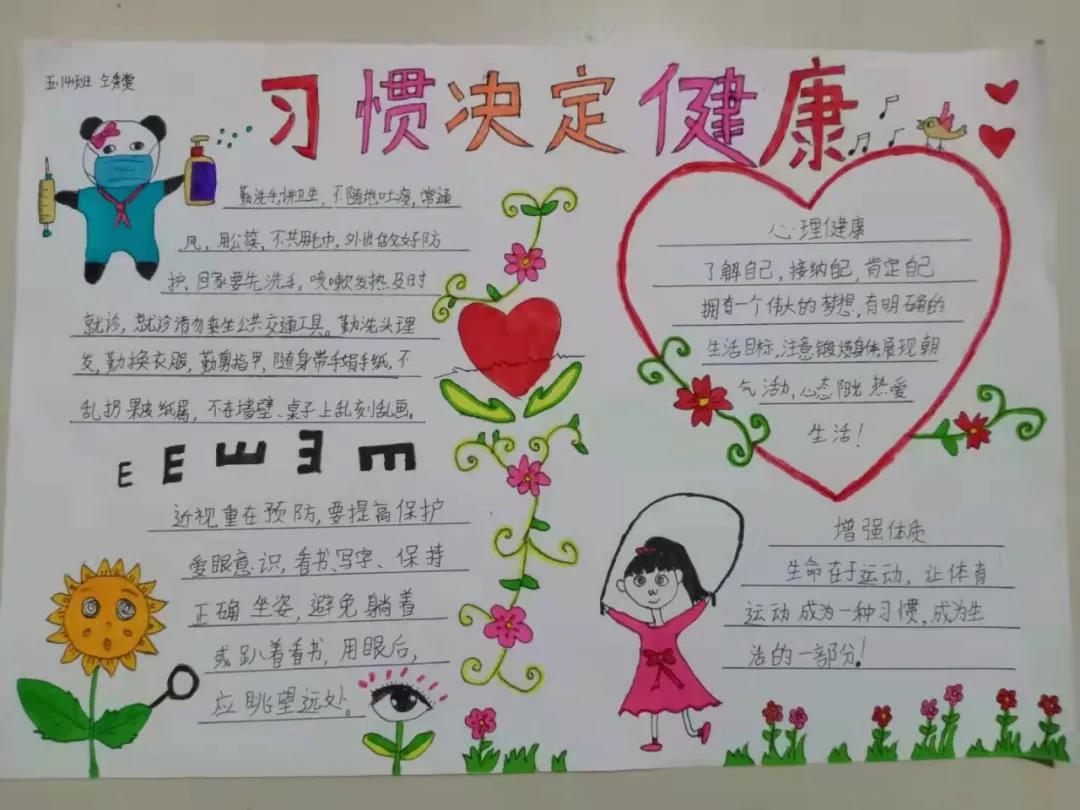 五·14班
习惯决定健康
勤洗手,讲卫生,不随地吐痰,常通
风,用公筷,不共用毛巾,外出佽好防
护,回家要先洗手,咳嗽发热及时
就诊,就诊请勿乘坐公共交通工具。勤洗头理
发,勤换衣服,勤剪指甲,随身带手娟手纸,不
乱扔果皮纸属,不在墙壁、桌子上乱刻乱画。
E E E E E
近视重在预防,要提高保护
爱眼意识,看书、写字、保持
正确坐姿,避免躺着
或趴着看书,用眼后,
应眺望远处。
心理健康
了解自己,接纳自己,肯定自己
拥有一个伟大的梦想,有明确的
生活目标,注意锻炼身体,展现朝
气活动,心态阳光热爱
生活!
增强体质
生命在于运动,让体育
运动成为一种习惯,成为生
活的一部分!